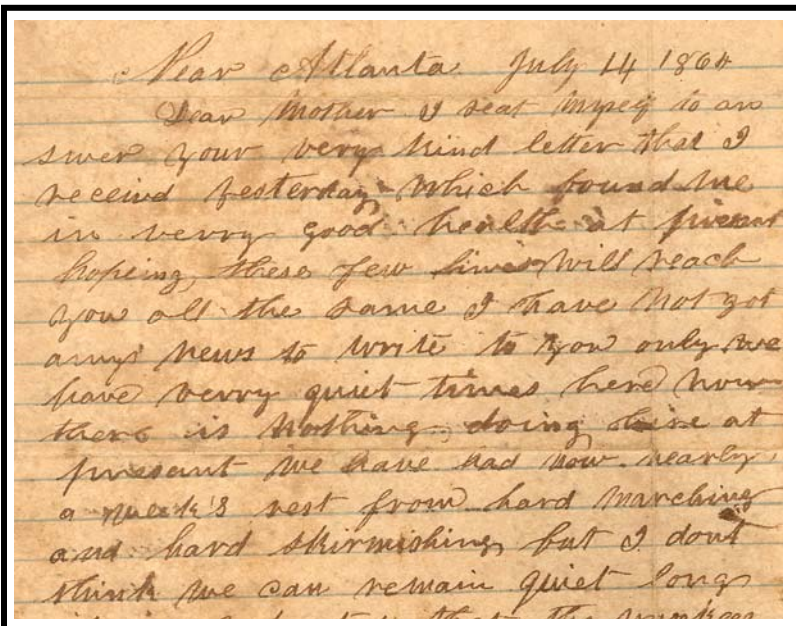 Near Atlanta July 14 1864
Dear Mother I seat myself to an
swer your verry kind letter that I
received yesterday which found me
in verry good health at present
hopeing these few lines will reach
you all the same I have not got
any news to write to you only we
have verry quiet times here now
there is nothing doing here at
pressant we have had now nearly
a week's rest from hard marching
and hard skirmishing but I dont
think we can remain quiet long
that the